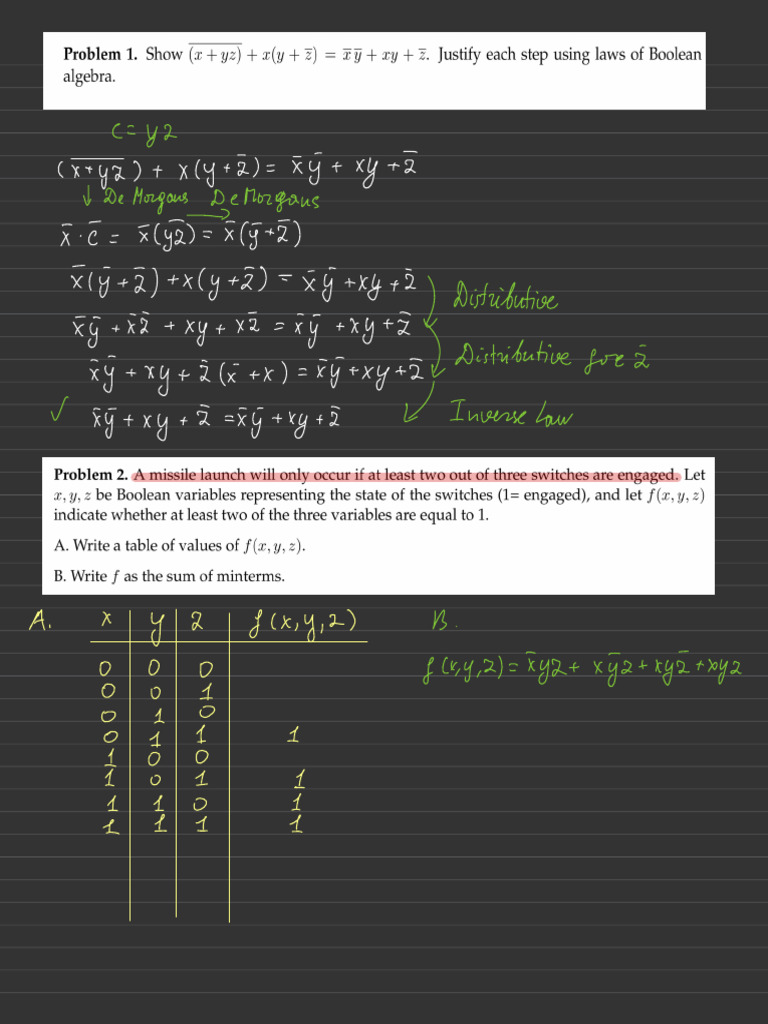 Problem 1. Show $\overline{(x + yz)} + x(y + \bar{z}) = \bar{x}\,\bar{y} + xy + \bar{z}$. Justify each step using laws of Boolean
algebra.
C = yz
$(\overline{x + yz}) + x(y + \bar{z}) = \bar{x}\bar{y} + xy + \bar{z}$
↓ De Morgans De Morgans →
$\bar{x} \cdot \bar{C} = \bar{x}(\overline{yz}) = \bar{x}(\bar{y} + \bar{z})$
$\bar{x}(\bar{y} + \bar{z}) + x(y + \bar{z}) = \bar{x}\bar{y} + xy + \bar{z}$
Distributive
$\bar{x}\bar{y} + \bar{x}\bar{z} + xy + x\bar{z} = \bar{x}\bar{y} + xy + \bar{z}$
Distributive for $\bar{z}$
$\bar{x}\bar{y} + xy + \bar{z}(\bar{x} + x) = \bar{x}\bar{y} + xy + \bar{z}$
✓ $\bar{x}\bar{y} + xy + \bar{z} = \bar{x}\bar{y} + xy + \bar{z}$ Inverse Law
Problem 2. A missile launch will only occur if at least two out of three switches are engaged. Let
x, y, z be Boolean variables representing the state of the switches (1= engaged), and let f(x, y, z)
indicate whether at least two of the three variables are equal to 1.
A. Write a table of values of f(x, y, z).
B. Write f as the sum of minterms.
A. x y z f(x,y,z)
0 0 0
0 0 1
0 1 0
0 1 1 1
1 0 0
1 0 1 1
1 1 0 1
1 1 1 1
B.
$f(x,y,z) = \bar{x}yz + x\bar{y}z + xy\bar{z} + xyz$